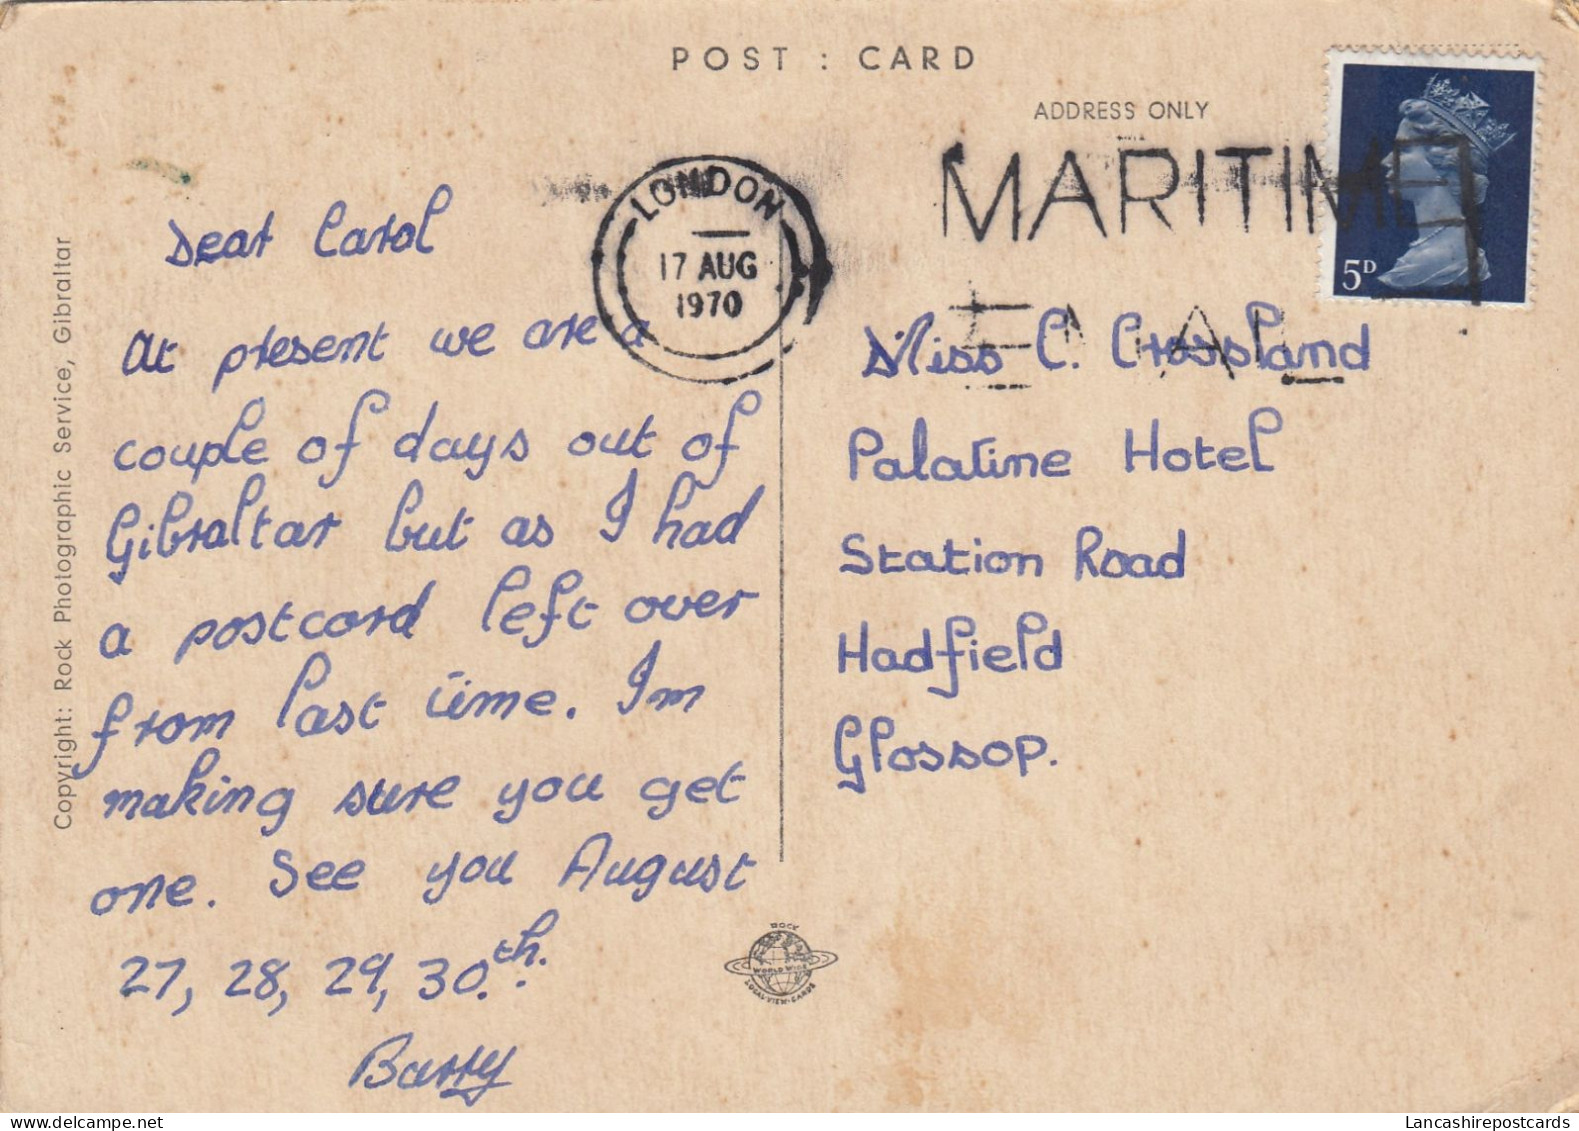 POST : CARD
ADDRESS ONLY
MARITIME
5D
LONDON
17 AUG
1970
Dear Carol
At present we are a
couple of days out of
Gibraltar but as I had
a postcard left over
from last time. Im
making sure you get
one. See you August
27, 28, 29, 30.th.
Barry
Miss C. Crossland
Palatine Hotel
Station Road
Hadfield
Glossop.
Copyright: Rock Photographic Service, Gibraltar
ROCK
WORLD WIDE
LOCAL-VIEW-CARDS
Lancashirepostcards